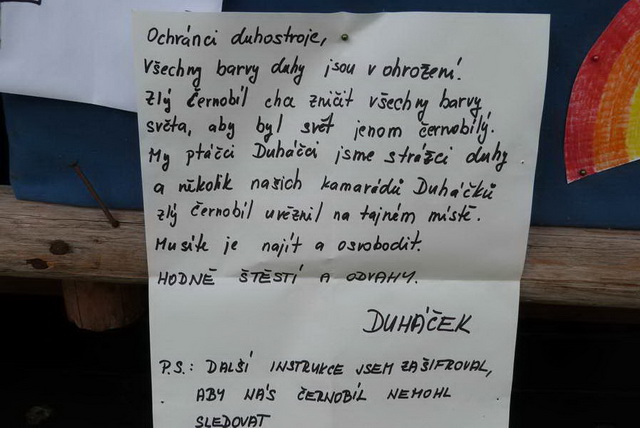 Ochránci duhostroje,
Všechny barvy duhy jsou v ohrožení!
Zlý černobíl chce zničit všechny barvy
světa, aby byl svět jenom černobílý.
My ptáčci Duháčci jsme strážci duhy
a několik našich kamarádů Duháčků
zlý černobíl uvěznil na tajném místě.
Musíte je najít a osvobodit.
HODNĚ ŠTĚSTÍ A ODVAHY.
DUHÁČEK
P.S.: DALŠÍ INSTRUKCE JSEM ZAŠIFROVAL,
ABY NÁS ČERNOBÍL NEMOHL
SLEDOVAT